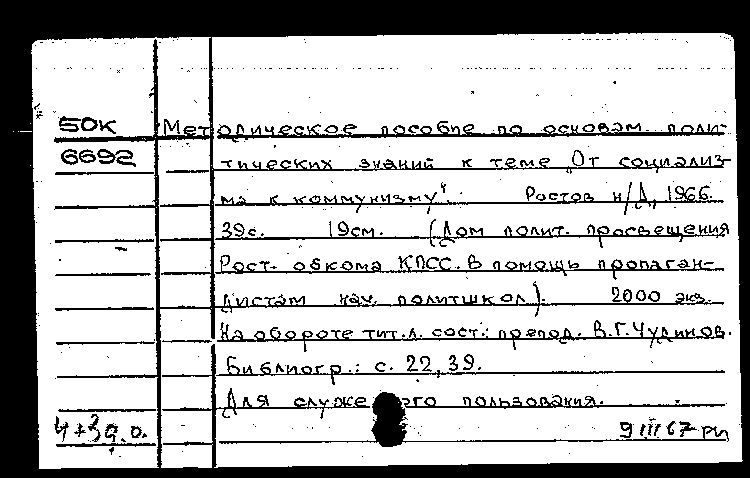 БОК Методическое пособие по основам поли-
6692 тических знаний к теме „От социализ-
ма к коммунизму". Ростов н/Д, 1966.
39с. 19см. (Дом полит. просвещения
Рост. обкома КПСС. В помощь пропаган-
дистам нач. политшкол). 2000 экз.
На обороте тит.л. сост.: препод. В.Г.Чудинов.
Библиогр.: с. 22, 39.
Для служе го пользования.
4+3д.о. 9 III 67